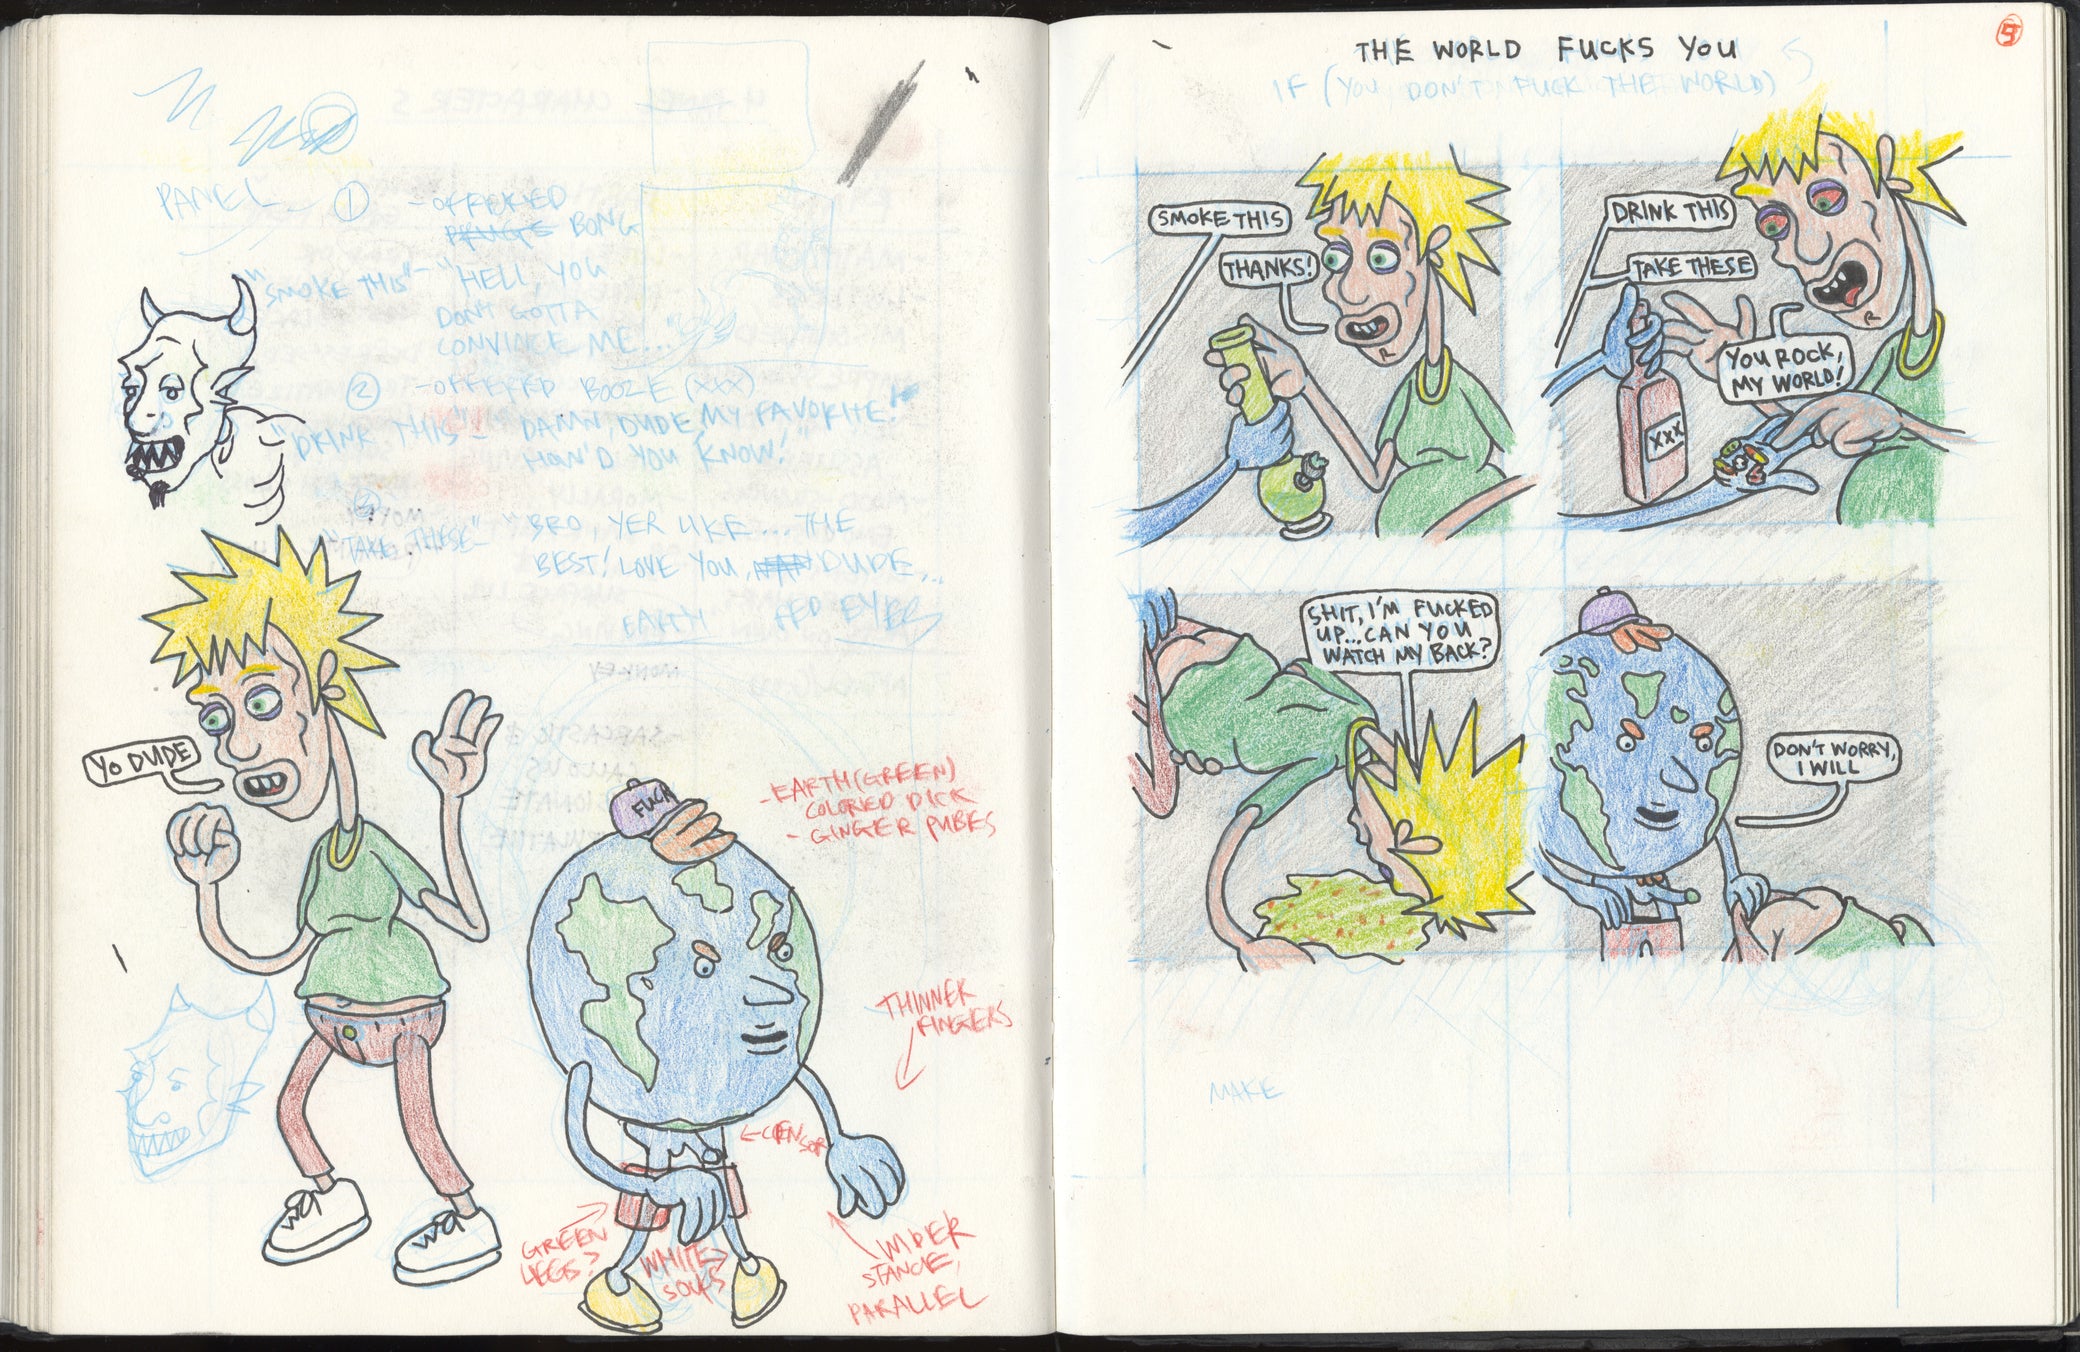 PANEL - 1 - OFFERED
DRUGS BONG
"SMOKE THIS" - "HELL, YOU
DON'T GOTTA
CONVINCE ME..."
2 - OFFERED BOOZE (XXX)
"DRINK THIS" - "DAMN, DUDE, MY FAVORITE!
HOW'D YOU KNOW!"
3
"TAKE THESE" - "BRO, YER LIKE... THE
BEST! LOVE YOU, DUDE...
EARTH RED EYES
YO DUDE
FUCK
- EARTH (GREEN)
COLORED DICK
- GINGER PUBES
THINNER
FINGERS
← CENSOR
GREEN
LEGS?
WHITE
SOCKS
WIDER
STANCE,
PARALLEL
9
THE WORLD FUCKS YOU
IF (YOU DON'T FUCK THE WORLD)
SMOKE THIS
THANKS!
DRINK THIS
TAKE THESE
YOU ROCK,
MY WORLD!
XXX
SHIT, I'M FUCKED
UP... CAN YOU
WATCH MY BACK?
DON'T WORRY,
I WILL
MAKE